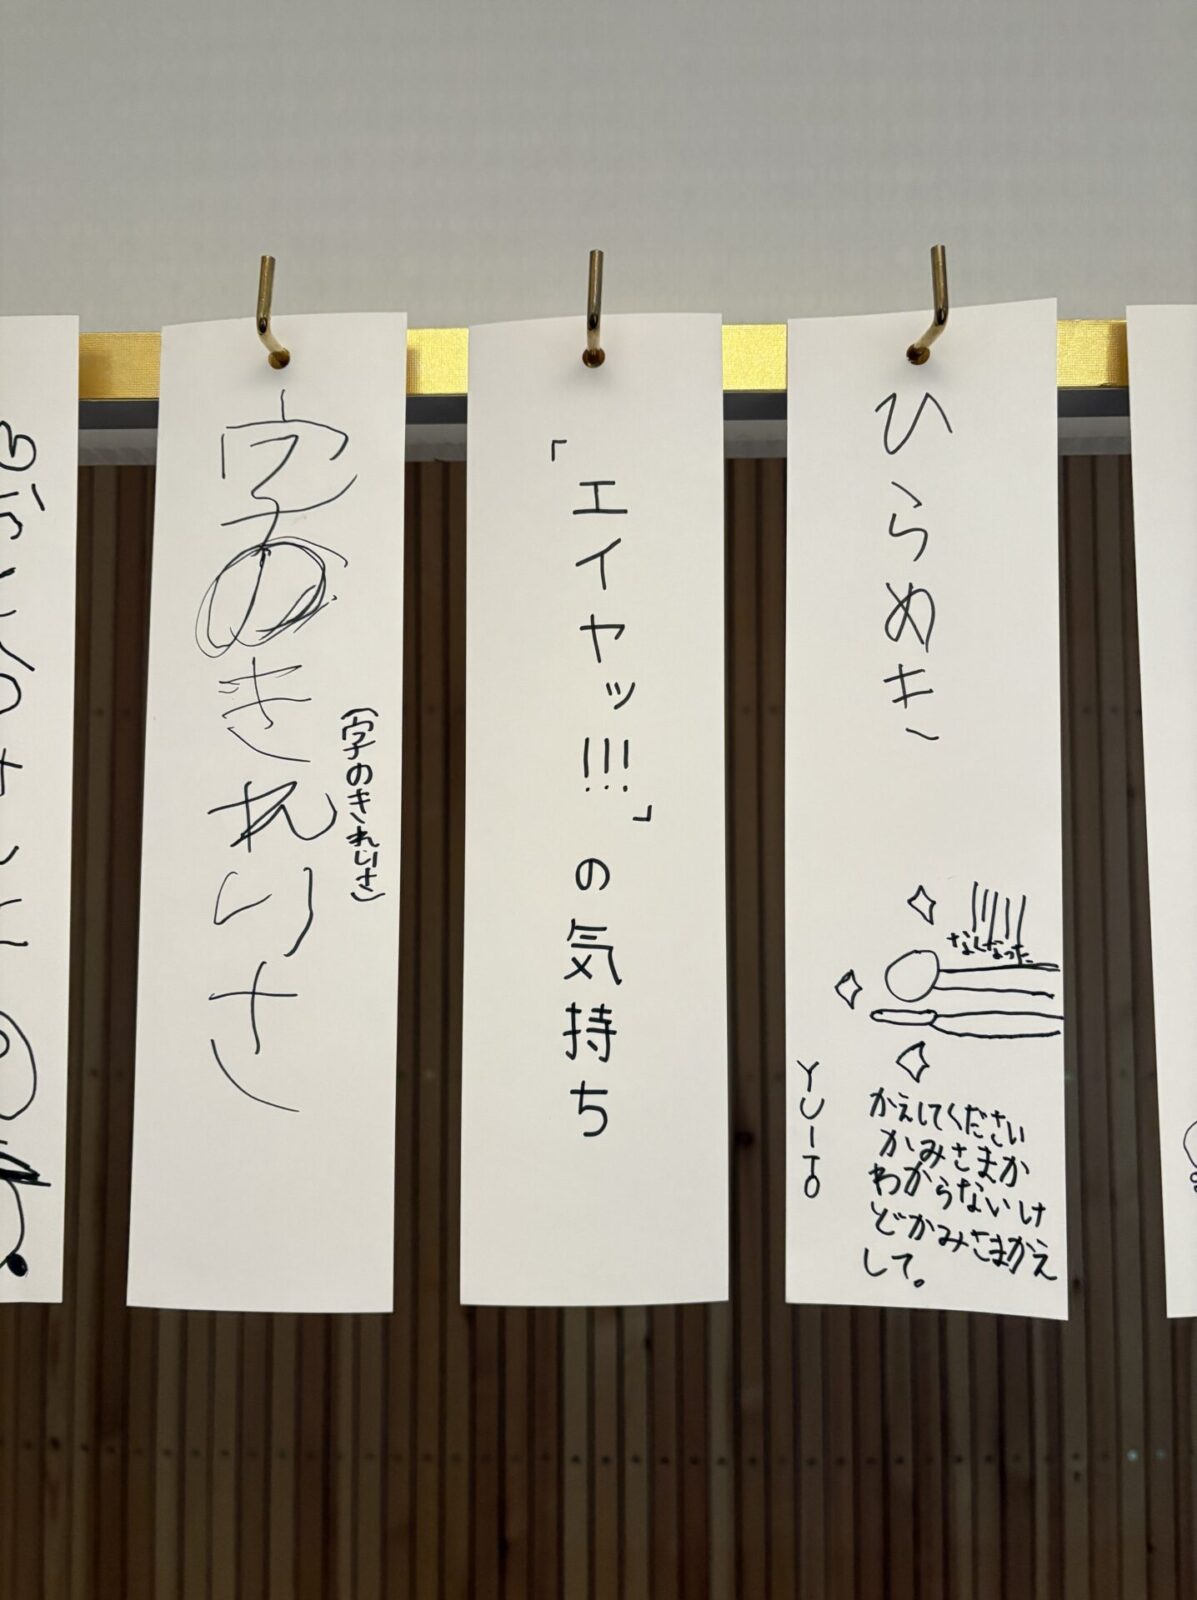 字のきれいさ
(字のきれいさ)
「エイヤッ!!!」の気持ち
ひらめき
なくなった
かえしてください
かみさまか
わからないけ
どかみさまかえ
して。
YUITO